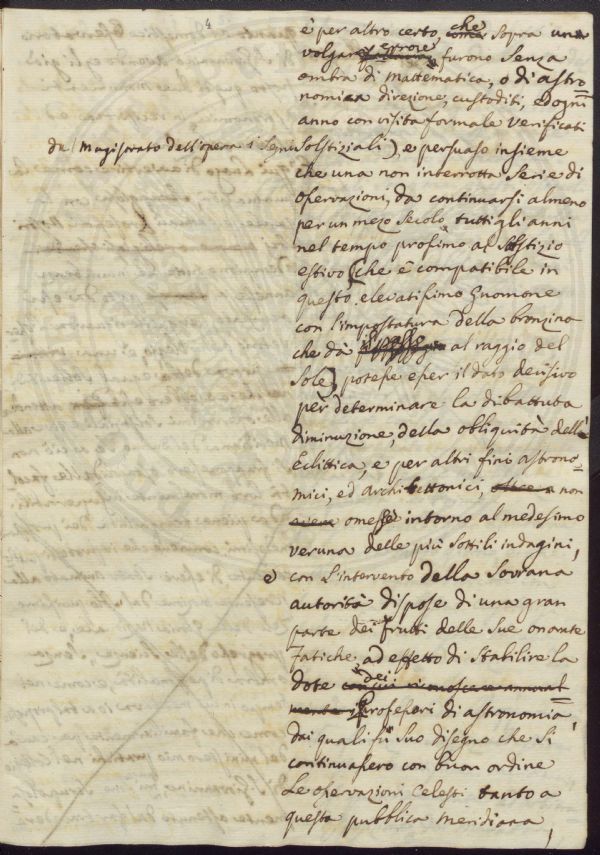 4
è per altro certo, che sopra un
volgare errore furono senza
ombra di mattematica, o di astro=
nomica direzione, custoditi, e ogni
anno con visita formale verificati
da (Magistrato dell'opera i segni Solstiziali), e persuaso insieme
che una non interrotta serie di
osservazioni, da continuarsi almeno
per un mezo secolo tutti gli anni
nel tempo prossimo al solstizio
estivo (che è compatibile in
questo elevatissimo Gnomone
con l'impostatura della bronzina
che dà il passo al raggio del
Sole) potesse esser il dato decisivo
per determinare la dibattuta
diminuzione, della obliquità dell'
Eclittica, e per altri fini astrono=
mici, ed architettonici, non
omesse intorno al medesimo
veruna delle più sottili indagini,
e con l'intervento della Sovrana
autorità dispose di una gran
parte dei frutti delle sue onorate
fatiche ad effetto di stabilire la
dote dei
Professori di astronomia,
dai quali fù suo disegno che si
continuassero con buon ordine
le osservazioni celesti tanto a
questa pubblica meridiana,